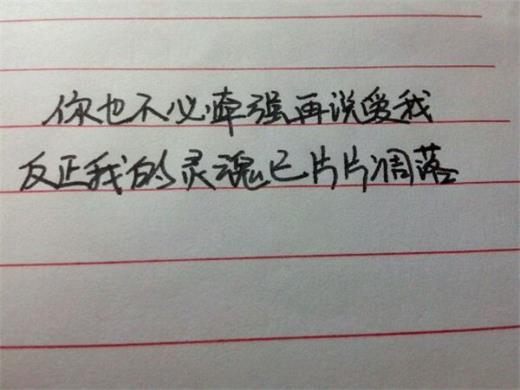 你也不必牵强再说爱我
反正我的灵魂已片片凋落